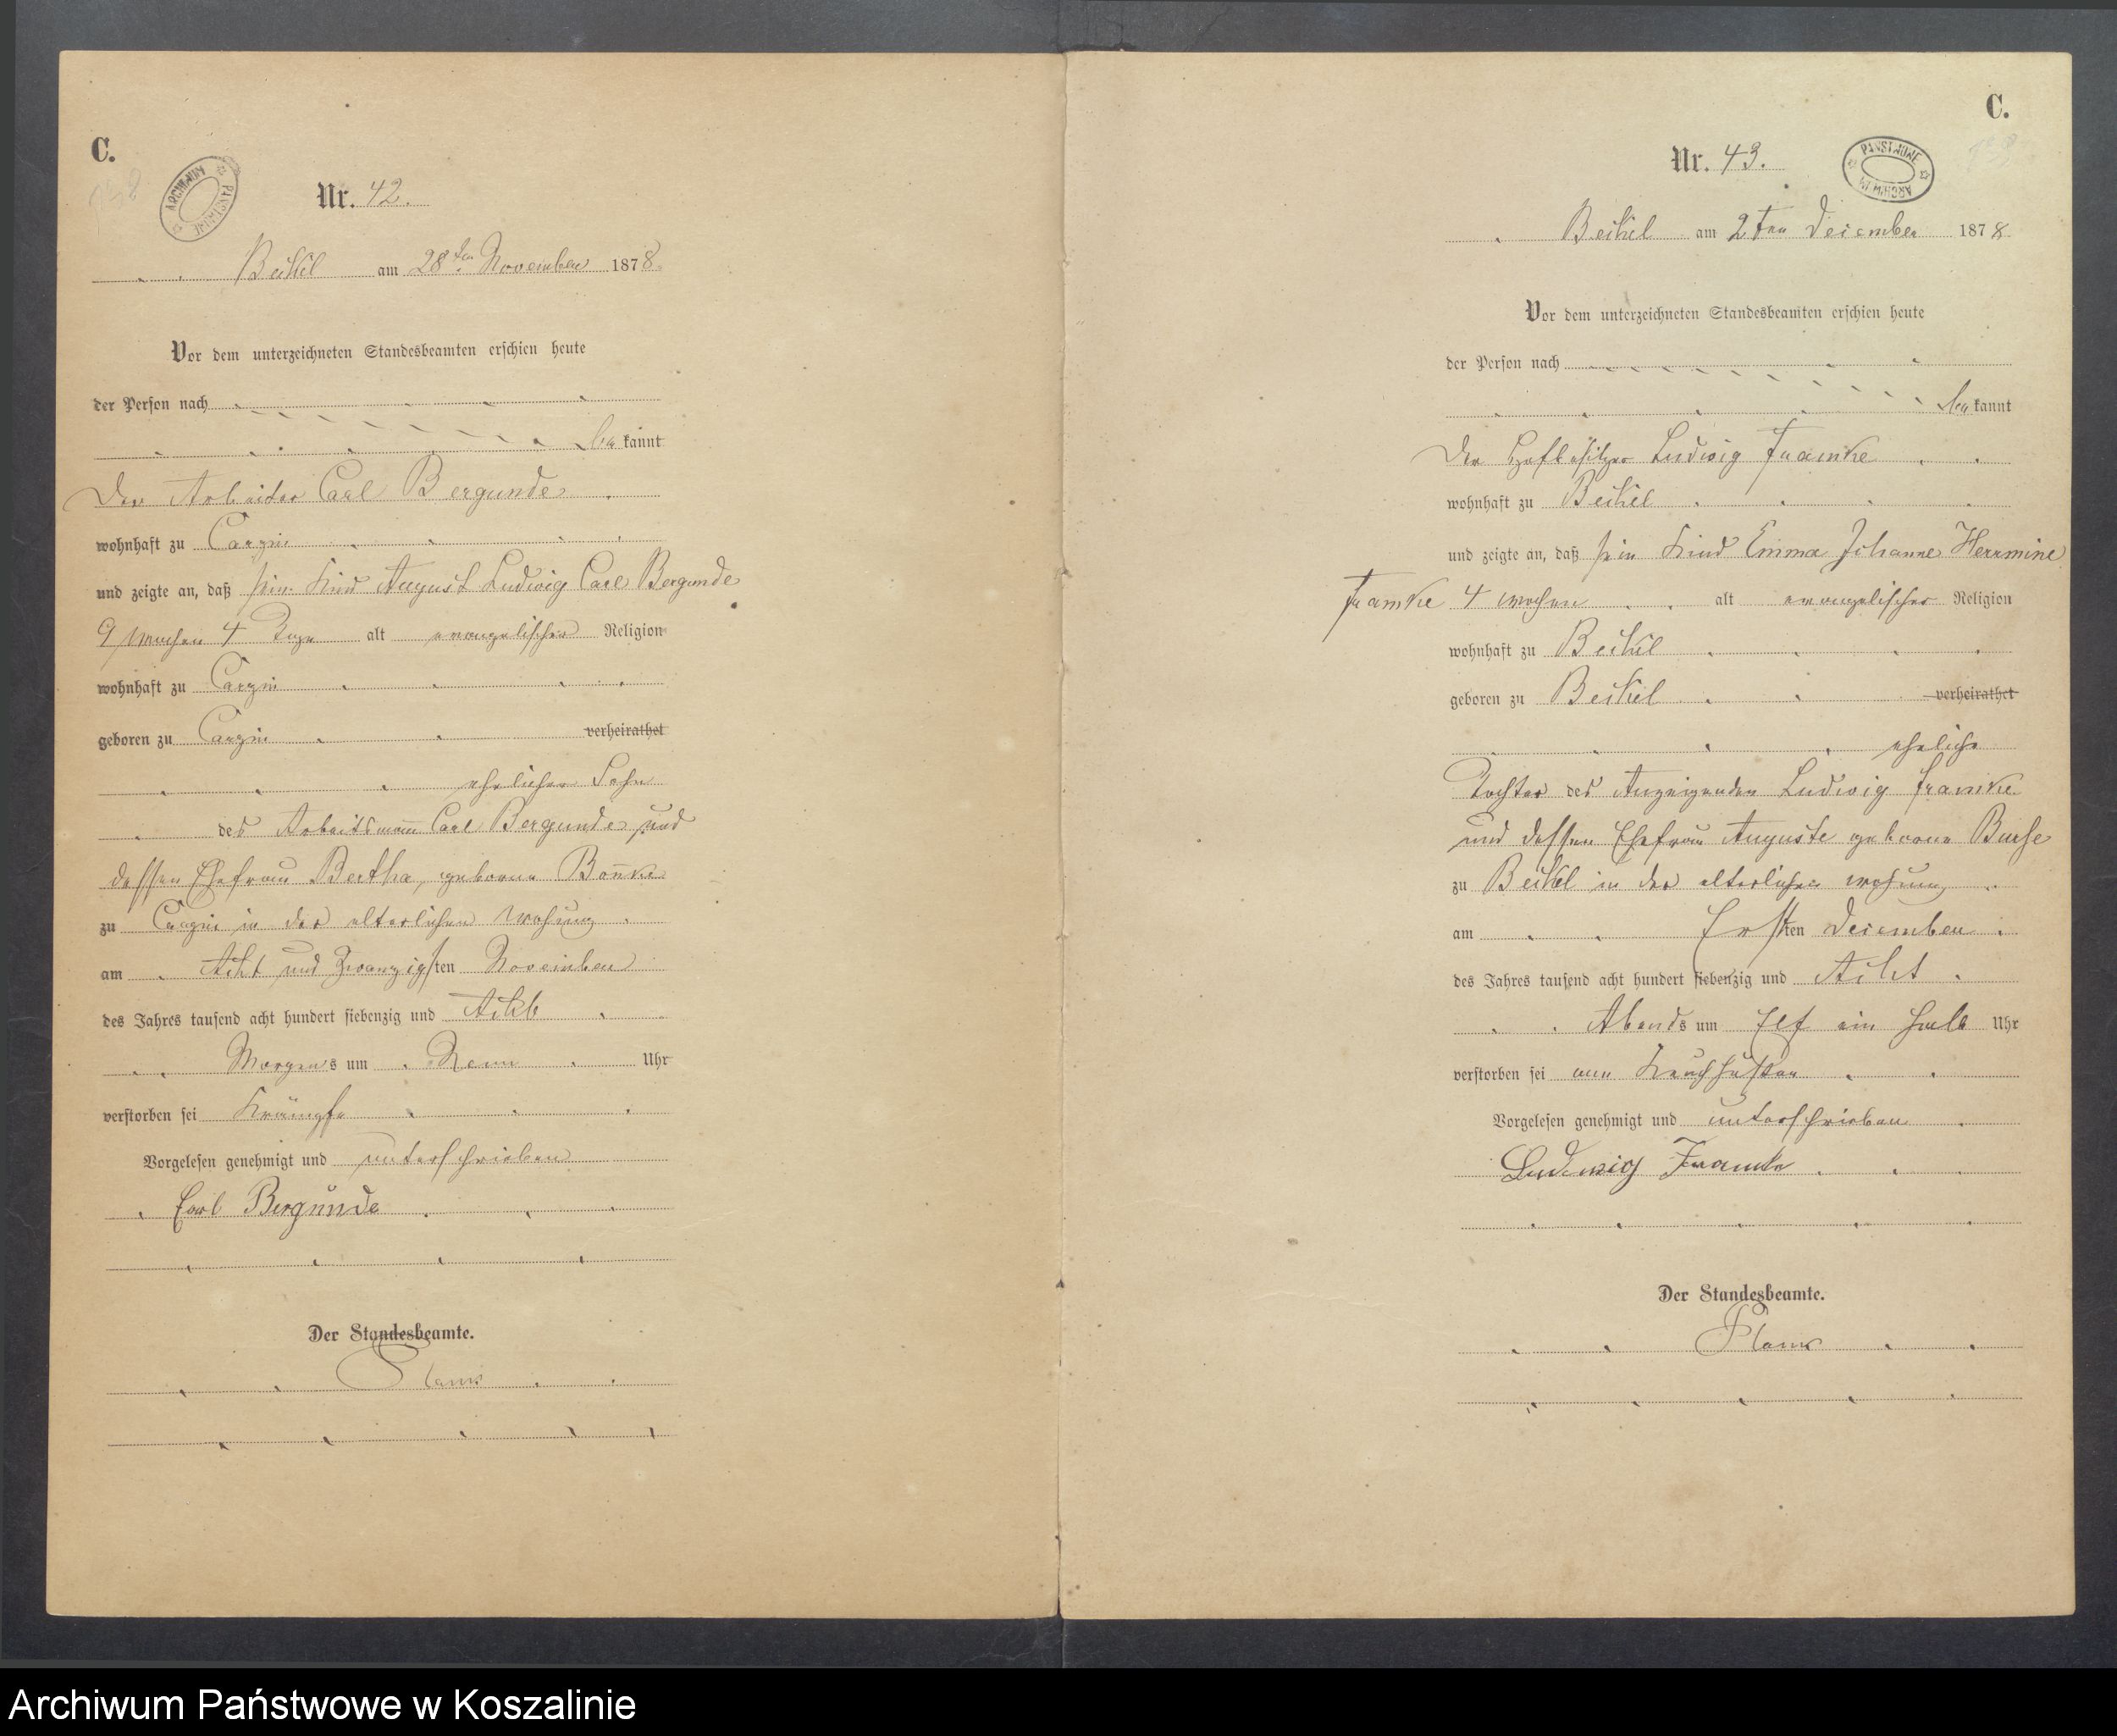 C.
ARCHIWUM PAŃSTWOWE
Nr. 42.
am 28ten November 1878.
Vor dem unterzeichneten Standesbeamten erschien heute
der Person nach
be kannt
Der Arbeiter Carl Bergunde
wohnhaft zu Carzin
und zeigte an, daß sein Kind August Ludwig Carl Bergunde
9 Wochen 4 Tage alt evangelischer Religion
wohnhaft zu Carzin
geboren zu Carzin verheirathet
ehelicher Sohn
des Arbeitsmann Carl Bergunde und
dessen Ehefrau Bertha, geborne
zu Carzin in der elterlichen Wohung
am Acht und Zwanzigsten November
des Jahres tausend acht hundert siebenzig und Acht
Morgens um Neun Uhr
verstorben sei Krämpfe
Vorgelesen genehmigt und unterschrieben
Carl Bergunde
Der Standesbeamte.
C.
Nr. 43.
PAŃSTWOWE ARCHIWUM
am 2ten December 1878.
Vor dem unterzeichneten Standesbeamten erschien heute
der Person nach
be kannt
Der Hofbesitzer Ludwig Framke
wohnhaft zu
und zeigte an, daß sein Kind Emma Johanne Herrmine
Framke 4 Wochen alt evangelischer Religion
wohnhaft zu
geboren zu verheirathet
eheliche
Tochter des Anzeigenden Ludwig Framke
und dessen Ehefrau Auguste geborne
zu in der elterlichen Wohung
am Ersten December
des Jahres tausend acht hundert siebenzig und Acht
Abends um Elf ein halb Uhr
verstorben sei am Keuchhusten
Vorgelesen genehmigt und unterschrieben
Ludwig Framke
Der Standesbeamte.
Archiwum Państwowe w Koszalinie